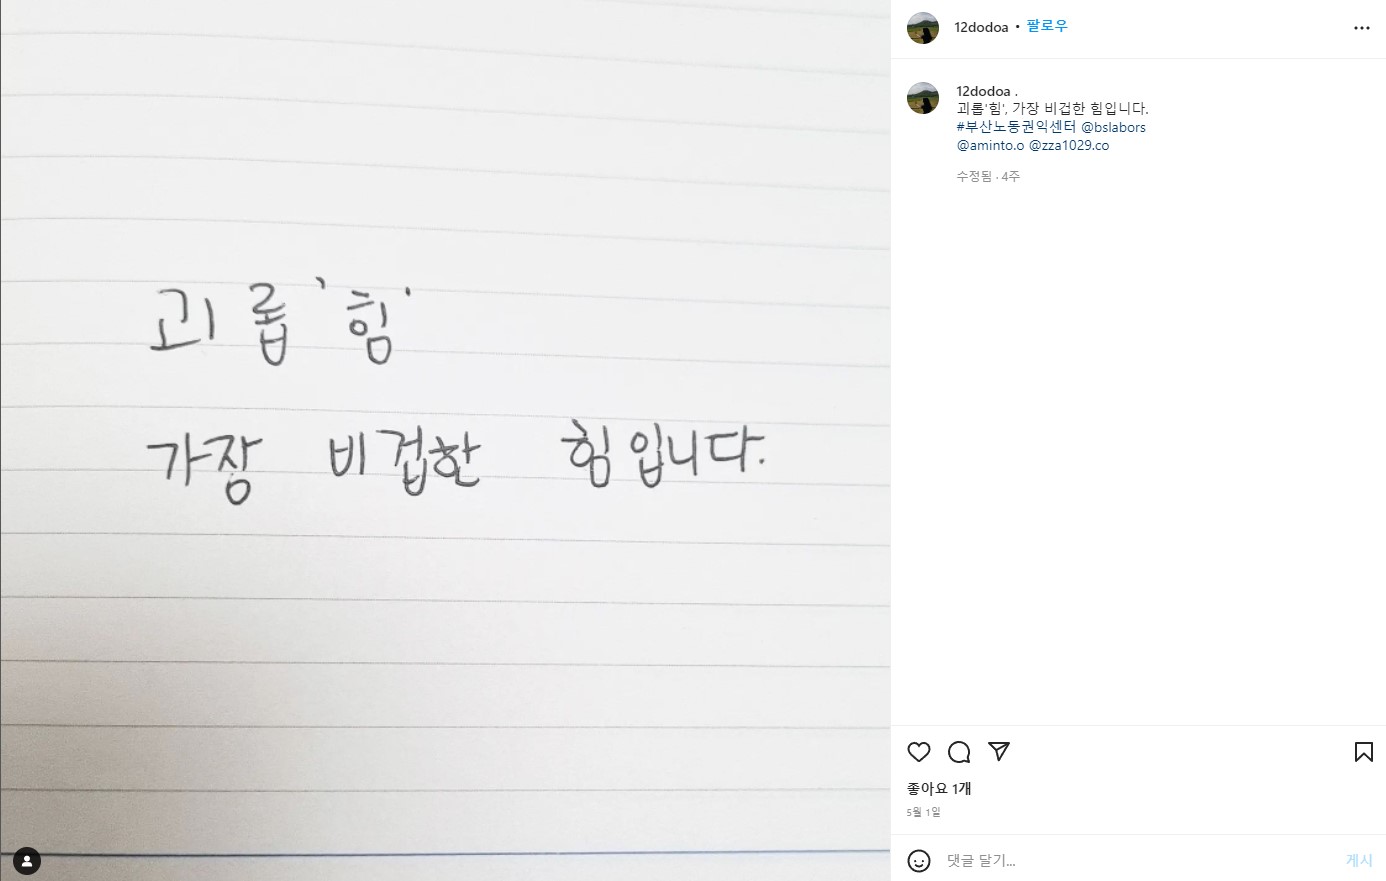 괴롭'힘'
가장 비겁한 힘입니다.
12dodoa • 팔로우
12dodoa .
괴롭'힘', 가장 비겁한 힘입니다.
#부산노동권익센터 @bslabors
@aminto.o @zza1029.co
수정됨 · 4주
좋아요 1개
5월 1일
댓글 달기...
게시